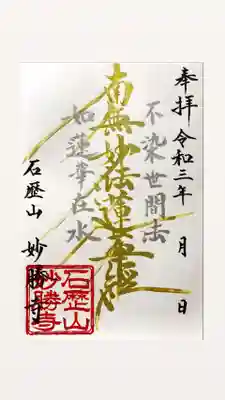 奉拝 令和三年 月 日
不染世間法
南無妙法蓮華経
如蓮華在水
石歴山 妙勝寺
石歴山
妙勝寺